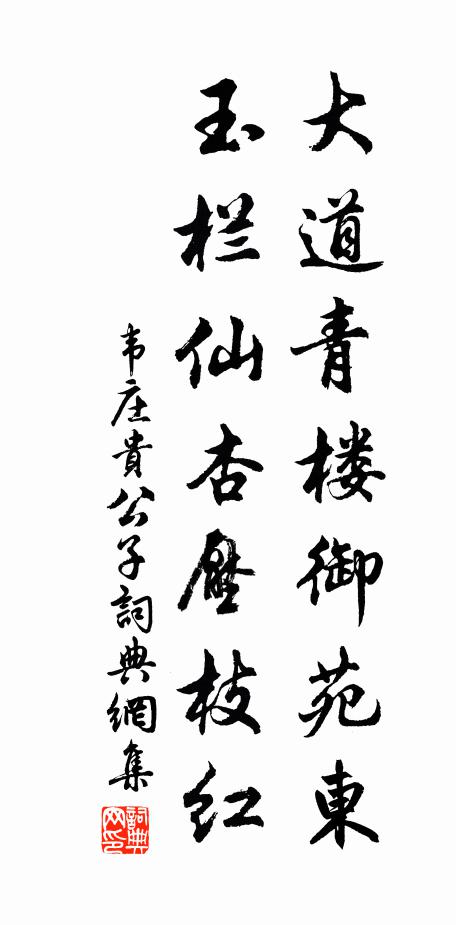 大道青楼御苑東
玉栏仙杏壓枝红
韦庄貴公子詞典網集
詞典网印